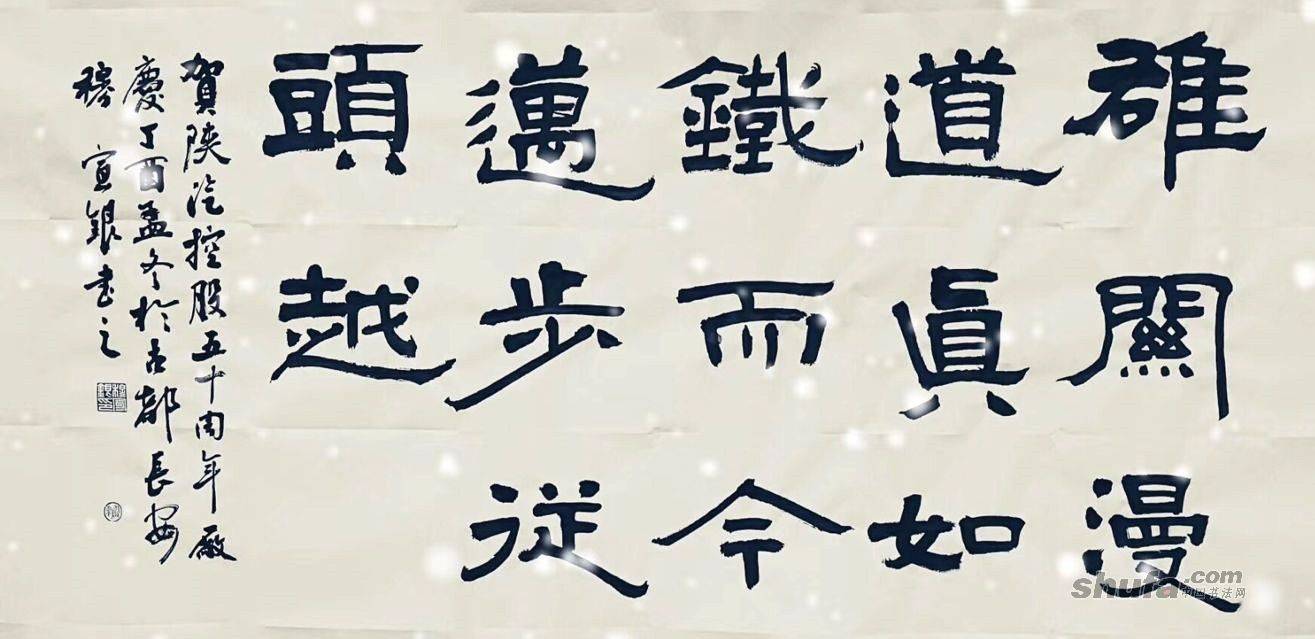 雄關漫
道眞如
鐵而今
邁步從
頭越
賀陝汽控股五十周年廠
慶丁酉孟冬於古都長安
穆宣銀書之
shufa.com
中国书法网